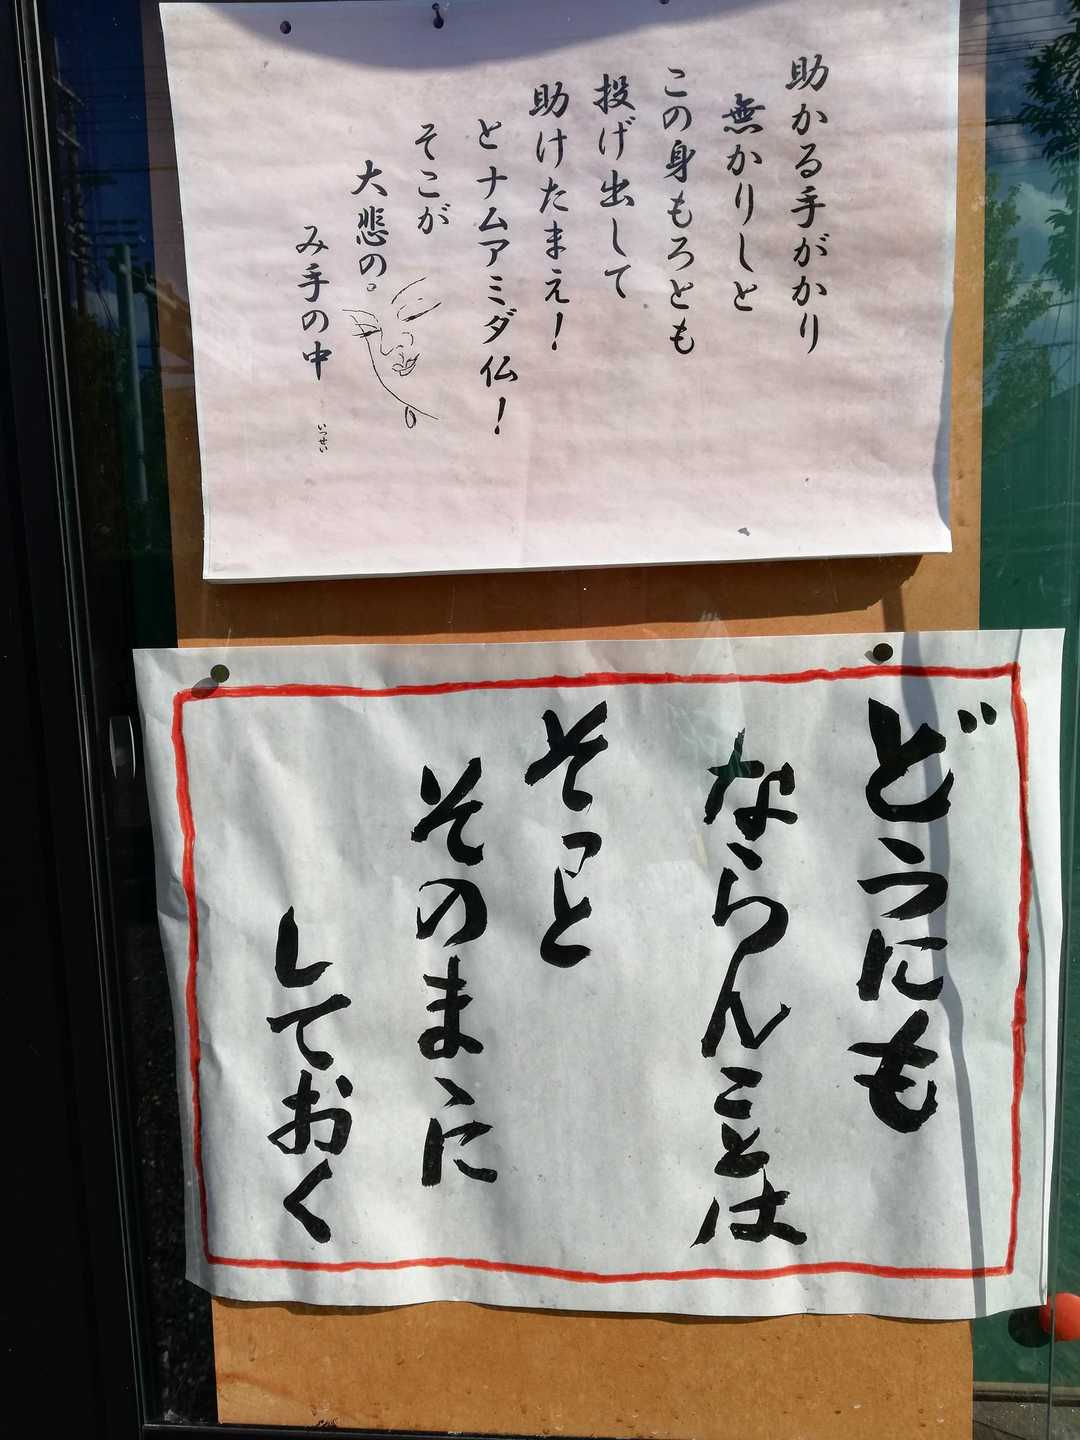 助かる手がかり
無かりしと
この身もろとも
投げ出して
助けたまえ！
とナムアミダ仏！
そこが
大悲の。
み手の中
いっせい
どうにも
ならんことは
そっと
そのまゝに
しておく